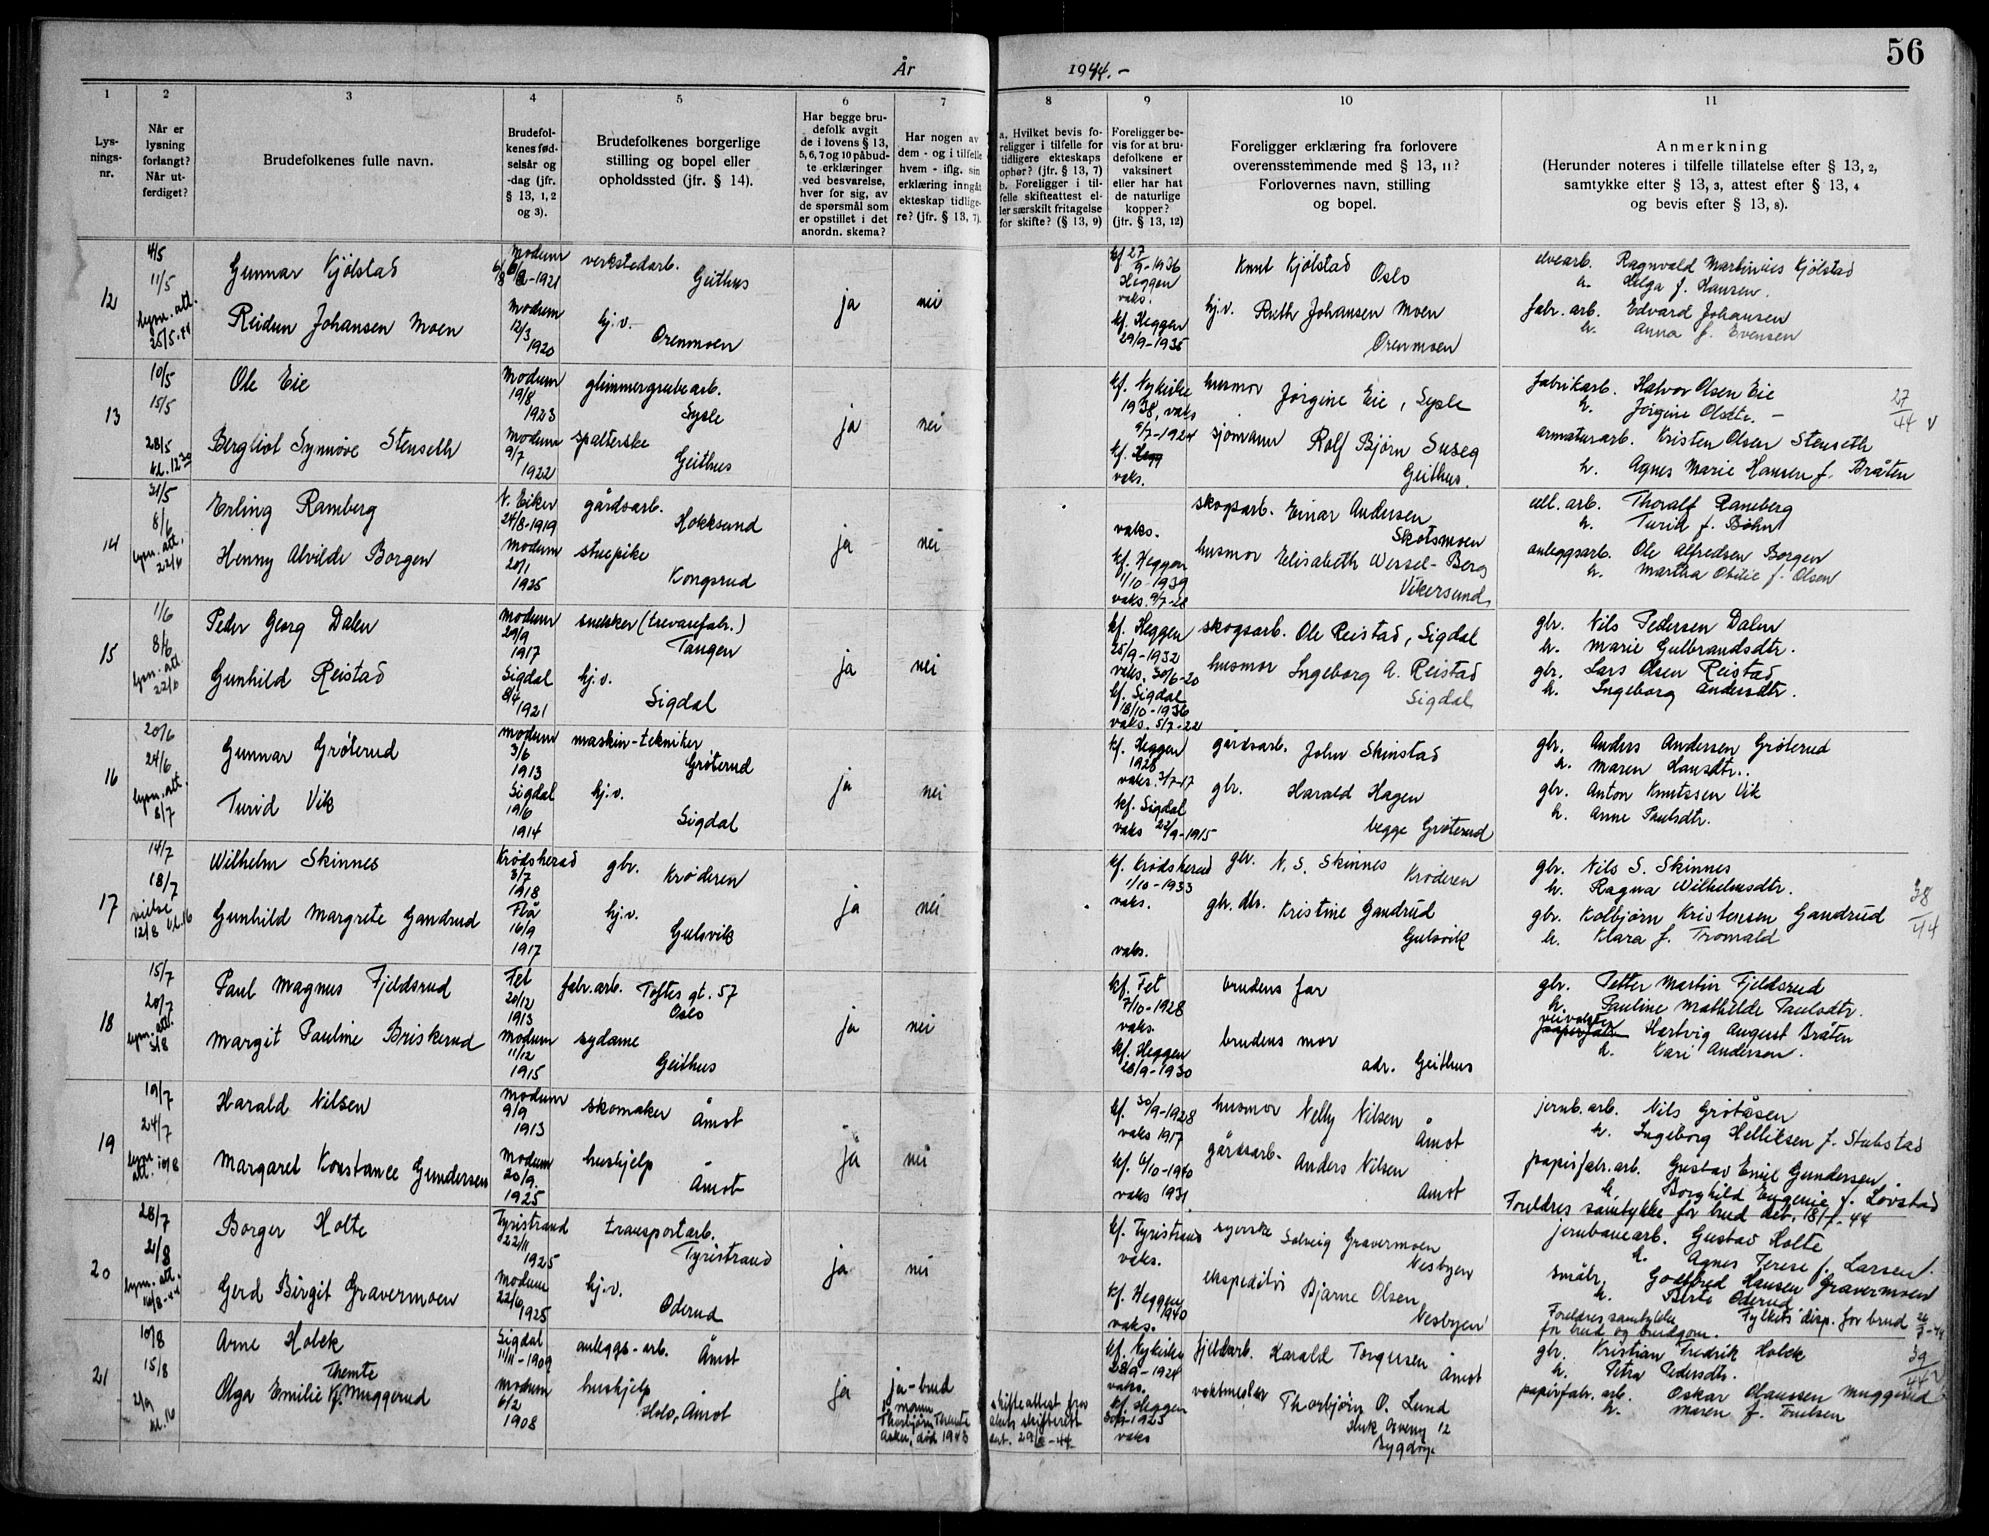 56
År 1944.-
1 2 3 4 5 6 7 8 9 10 11
Lys-
nings-
nr.
Når er
lysning
forlangt?
Når ut-
ferdiget?
Brudefolkenes fulle navn.
Brudefol-
kenes fød-
selsår og
-dag (jfr.
§ 13, 1, 2
og 3).
Brudefolkenes borgerlige
stilling og bopel eller
opholdssted (jfr. § 14).
Har begge bru-
defolk avgit
de i lovens § 13,
5, 6, 7 og 10 påbud-
te erklæringer
ved besvarelse,
hver for sig, av
de spørsmål som
er opstillet i det
anordn. skema?
Har nogen av
dem - og i tilfelle
hvem - iflg. sin
erklæring inngåt
ekteskap tidlige-
re? (jfr. § 13, 7).
a. Hvilket bevis fo-
religger i tilfelle for
tidligere ekteskaps
ophør? (jfr. § 13, 7)
b. Foreligger i til-
felle skifteattest el-
ler særskilt fritagelse
for skifte? (§ 13, 9)
Foreligger be-
vis for at bru-
defolkene er
vaksinert
eller har hat
de naturlige
kopper?
(jfr. § 13, 12)
Foreligger erklæring fra forlovere
overensstemmende med § 13, 11?
Forlovernes navn, stilling
og bopel.
Anmerkning
(Herunder noteres i tilfelle tillatelse efter § 13, 2,
samtykke efter § 13, 3, attest efter § 13, 4
og bevis efter § 13, 8).
12
4/5
11/5
lysn. att.
25/5-44
Gunnar Kjølstad
Modum
-1921
verkstedarb.
Geithus
Reidun Johansen Moen
Modum
12/3
1920
hj.v.
Orenmoen
ja
nei
kf. 27/9-1936
Heggen
vaks.
kf. Heggen
29/9-1935
Knut Kjølstad
Oslo
hj.v. Ruth Johansen Moen
Orenmoen
elvearb. Ragnvald Martinius Kjølstad
h. Helga f. Hansen.
fabr. arb. Edvard Johansen
h. Anna f. Evensen
13
10/5
15/5
28/5
kl. 12 30
Ole Eie
Modum
19/8
1923
glimmergrubearb.
Sysle
Bergliot Synnøve Stenseth
Modum
9/7
1922
spalterske
Geithus
ja
nei
kf. Nykirke
1938, vaks
5/7-1924
kf. Hegg
vaks.
husmor Jørgine Eie, Sysle
sjømann Rolf Bjørn Suseg
Geithus.
fabrikarb. Halvor Olsen Eie
h. Jørgine Olsdtr. -
armaturarb. Kristen Olsen Stenseth
h. Agnes Marie Hansen f. Bråten
27/44 v
14
31/5
8/6
lysn. att.
22/6
Erling Ramberg
N. Eiker
24/8-1919
gårdsarb.
Hokksund
Henny Alvilde Borgen
Modum
20/1
1925
stuepike
Kongsrud
ja
nei
vaks.
kf. Heggen
1/10-1939
vaks. 9/7-28
skogsarb. Einar Andersen
Skotsmoen
husmor Elisabeth Wessel-Berg
Vikersund
cell. arb. Thoralf Ramberg
h. Turid f. Bøhn
anleggsarb. Ole Alfredsen Borgen
h. Martha Otilie f. Olsen
15
1/6
8/6
lysn. att.
22/6
Peder Georg Dalen
Modum
29/9
1917
snekker (trevarefabr.)
Tangen
Gunhild Reistad
Sigdal
8/4
1921
hj.v.
Sigdal
ja
nei
kf. Heggen
25/9-1932
vaks. 30/6-20
kf. Sigdal
18/10-1936
vaks. 5/7-22
skogsarb. Ole Reistad, Sigdal
husmor Ingeborg A. Reistad
Sigdal
gbr. Nils Pedersen Dalen
h. Marie Gulbrandsdtr.
gbr. Lars Olsen Reistad
h. Ingeborg Andersdtr.
16
20/6
24/6
lysn. att.
8/7
Gunnar Grøterud
Modum
3/6
1913
maskin-tekniker
Grøterud
Turid Vik
Sigdal
19/6
1914
hj.v.
Sigdal
ja
nei
kf. Heggen
1928
vaks. 3/7-17
kf. Sigdal
vaks 22/9-1915
gårdsarb. John Skinstad
gbr. Harald Hagen
begge Grøterud
gbr. Anders Andersen Grøterud
h. Maren Hansdtr.
gbr. Anton Knutssen Vik
h. Anne Paulsdtr.
17
14/7
18/7
vielse
12/8 kl. 16
Wilhelm Skinnes
Krødsherad
3/7
1918
gbr.
Krøderen
Gunhild Margrete Gandrud
Flå
16/9
1917
hj.v.
Gulsvik
ja
nei
kf. Krødsherad
1/10-1933
vaks.
vaks.
gbr. N. S. Skinnes
Krøderen
gbr. dtr. Kristine Gandrud
Gulsvik
gbr. Nils S. Skinnes
h. Ragna Wilhelmsdtr.
gbr. Kolbjørn Kristensen Gandrud
h. Klara f. Tromald
38/44
18
15/7
20/7
lysn. att.
3/8
Paul Magnus Fjeldsrud
Fet
20/12
1913
fabr.arb. Toftes gt. 57
Oslo
Margit Pauline Briskerud
Modum
11/12
1915
sydame
Geithus
ja
nei
kf. Fet
7/10-1928
vaks.
kf. Heggen
28/9-1930
brudens far
brudens mor
adr. Geithus
gbr. Petter Martin Fjeldsrud
h. Pauline Mathilde Paulsdtr.
Hartvig August Bråten
h. Kari Anderson.
19
19/7
24/7
lysn.
att. 10/8
Harald Nilsen
Modum
9/9
1913
skomaker
Åmot
Margaret Konstance Gundersen
Modum
20/9.
1925
hushjelp
Åmot
ja
nei
kf. 30/9-1928
vaks 1917
kf. 6/10-1940
vaks 1931
husmor Nelly Nilsen
Åmot
gårdsarb. Anders Nilsen
Åmot
jernb. arb. Nils Grøtåsen
h. Ingeborg Helliksen f. Stubstad
papirfabr.arb. Gustav Emil Gundersen
h. Borghild Eugenie f. Løvstad
Foreldres samtykke for brud dat. 18/7-44
20
28/7
2/8
lysn. att.
16/8-44
Borger Holte
Tyristrand
22/11
1925
transportarb.
Tyristrand
Gerd Birgit Gravermoen
Modum
22/6
1925
hj.v.
Oderud
ja
nei
kf. Tyristrand
vaks.
kf. Heggen
1940
vaks.
syerske Solveig Gravermoen
Nesbyen
ekspeditør Bjarne Olsen
Nesbyen
jernbanearb. Gustav Holte
h. Agnes Terese f. Larsen.
småbr. Godtfred Hansen Gravermoen
h. Berte Oderud
Foreldres samtykke Fylkets disp. for brud 26/7-44
for brud og brudgom.
21
10/8
15/8
2/9
kl. 16
Arne Holek
Sigdal
11/11-1909
anleggs-arb.
Åmot
Themte
Olga Emilie f. Muggerud
Modum
6/2
1908
hushjelp
Holo, Åmot
ja
ja - brud
mann
Thorbjørn Themte
Asker, død 1943
skifteattest fra
skifterett
dat. 29/-44
kf. Nykirke
28/9-1924
vaks.
kf. Heggen
-1923
vaks
fjellarb. Harald Torgersen
Åmot
Thorbjørn O. Lund
Huk Aveny 12
Bygdøy
gbr. Kristian Fredrik Holek
h. Petra Pedersdtr.
papirfabr. arb. Oskar Olaussen Muggerud
h. Maren f. Truelsen
39/44